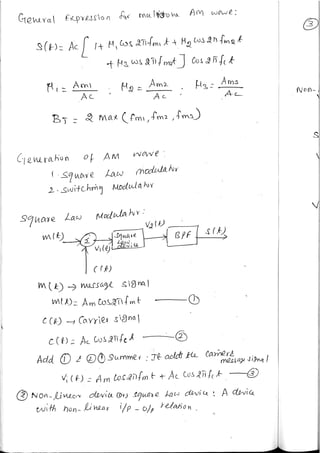 ③
General Expression for multitone Am wave:
S(t) = Ac [ 1 + M₁ Cos 2πfm₁ t + M₂ Cos 2πfm₂ t
+ M₃ Cos 2πfm₃t ] Cos 2πfc t
M₁ = Am1 / Ac M₂ = Am2 / Ac M₃ = Am3 / Ac
Non-
BT = 2 max (fm₁, fm₂, fm₃)
Generation of AM wave:
1. Square Law modulator
2. Switching Modulator
Square Law Modulator:
m(t) Σ V₁(t) Square Law device V₂(t) BPF S(t)
C(t)
m(t) → message signal
m(t) = Am Cos2πfmt —①
C(t) → Carrier signal
C(t) = Ac Cos2πfct —②
Add ① & ② Summer : It adds the Carrier & message signal
V₁(t) = Am Cos2πfmt + Ac Cos2πfct —③
② Non-Linear device (or) square Law device : A device
with non-linear i/p - o/p relation.